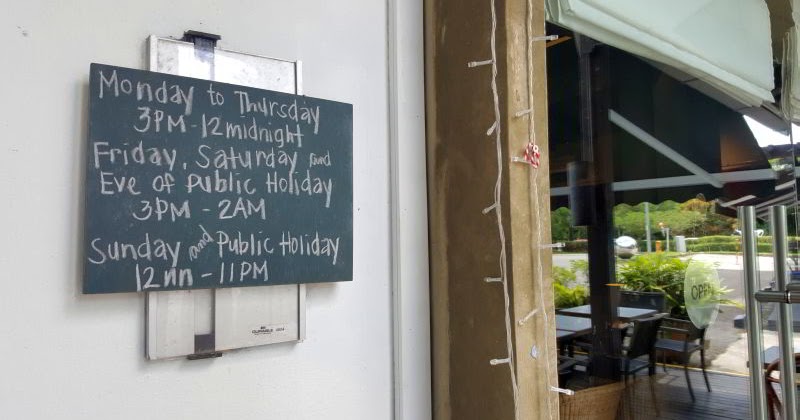 Monday to Thursday
3PM - 12midnight
Friday, Saturday and
Eve of Public Holiday
3PM - 2AM
Sunday and Public Holiday
12nn - 11PM
OPEN